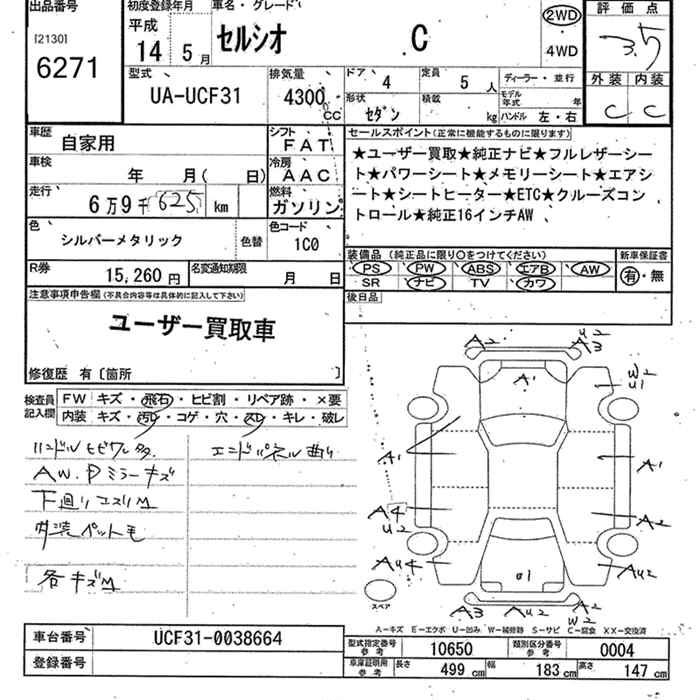 出品番号
[2130]
6271
初度登録年月
平成
14 5月
車名・グレード
セルシオ C
2WD
4WD
評価点
3.5
外装 内装
C C
型式
UA-UCF31
排気量
4300 CC
ドア 4
形状 セダン
定員 5 人
積載 kg
ディーラー・並行
モデル年式 年
ハンドル 左・右
車歴 自家用
シフト FAT
車検 年 月( 日)
冷房 AAC
走行 6万9千625 km
燃料 ガソリン
色 シルバーメタリック 色替
色コード 1C0
R券 15,260円
名変通知期限 月 日
セールスポイント(正常に機能するものに限ります)
★ユーザー買取★純正ナビ★フルレザーシー
ト★パワーシート★メモリーシート★エアシ
ート★シートヒーター★ETC★クルーズコン
トロール★純正16インチAW
装備品(純正品に限り○をつけてください)
PS PW ABS エアB AW
SR ナビ TV カワ
新車保証書
有・無
後日品
注意事項申告欄(不具合内容等は具体的に記入して下さい)
ユーザー買取車
修復歴 有〔箇所 〕
検査員記入欄
FW キズ・飛石・ヒビ割・リペア跡・×要
内装 キズ・汚レ・コゲ・穴・スレ・キレ・破レ
ハンドルヒビワレ タ
AW.Pミラーキズ
下廻リコスリM
内装ペット毛
各キズM
エンドパネル曲り
A2
U2
A3
A1
W2
U1
A1
A1
A4
U2
A2
AU4
AU2
01
スペア
A3 AU2 A2
W2
A−キズ E−エクボ U−凹み W−補修跡 S−サビ C−腐食 XX−交換済
車台番号 UCF31-0038664
登録番号
型式指定番号 参考 10650
類別区分番号 参考 0004
車庫証明用 参考 長さ 499 cm 幅 183 cm 高さ 147 cm